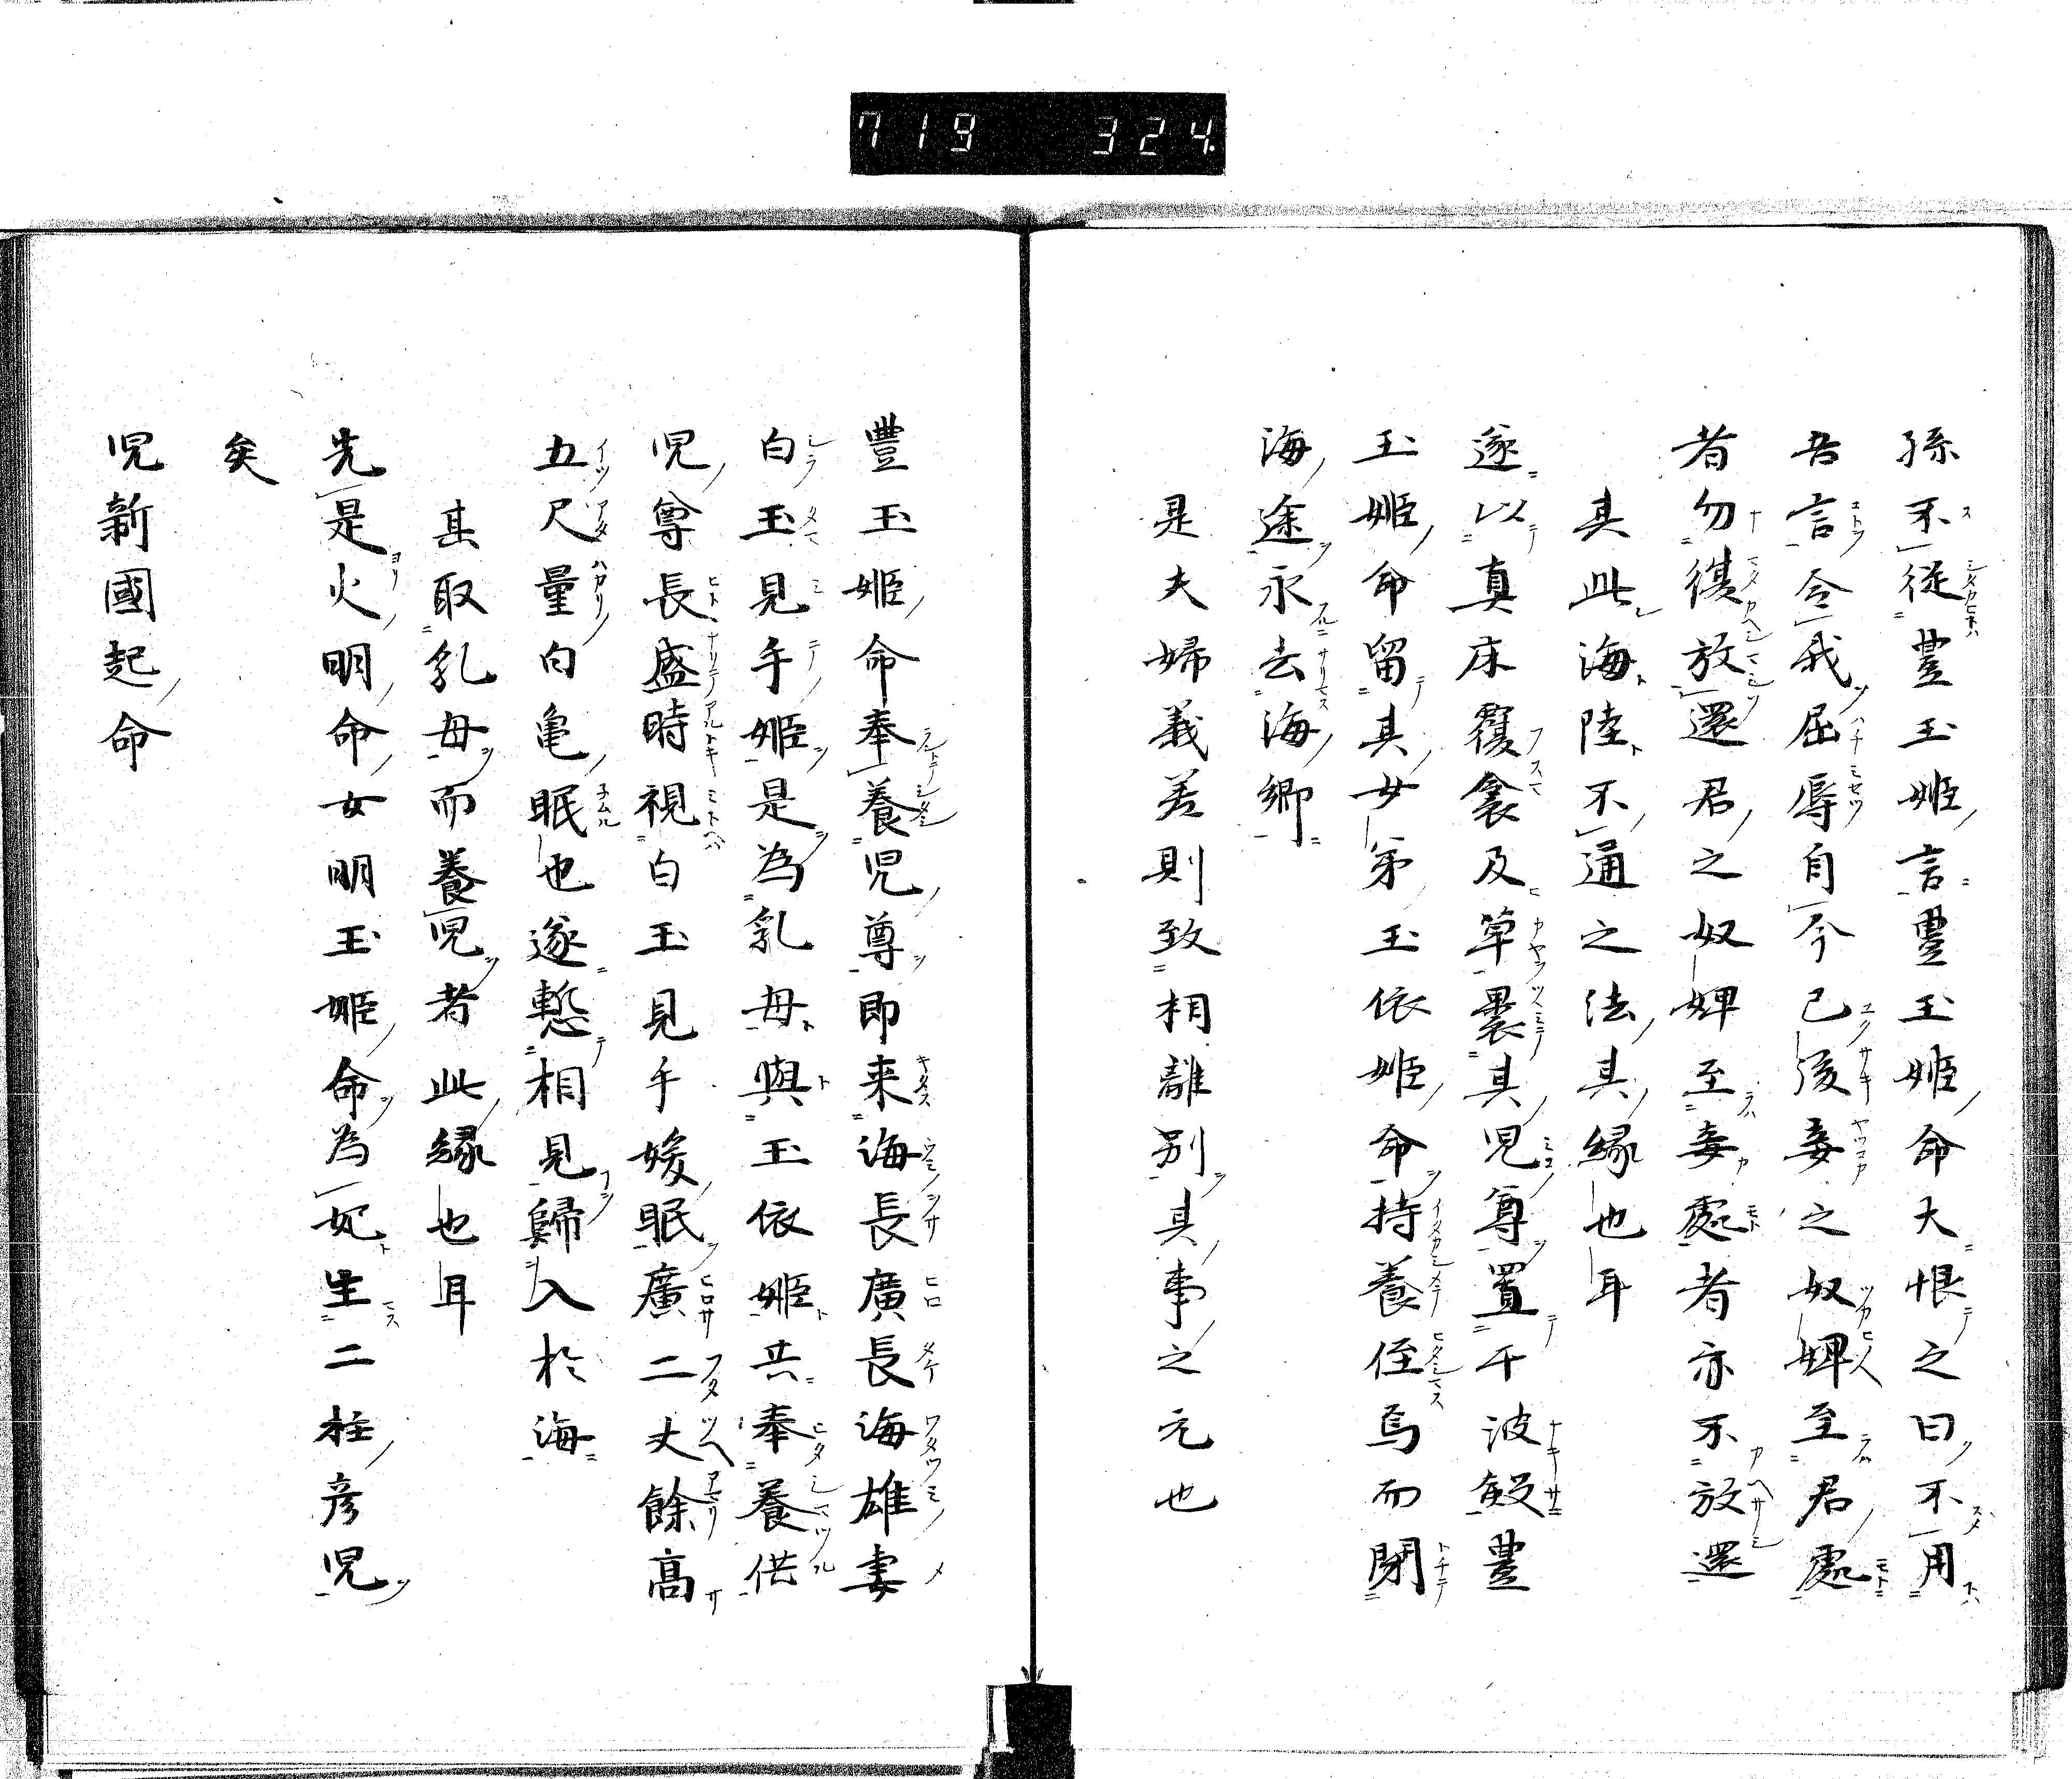 719 324
孫不従豊玉姫言豊玉姫命大恨之曰不用
吾言令我屈辱自今已後妾之奴婢至君處
者勿復放還君之奴婢至妾處者亦不放還
其此海陸不通之法其縁也耳
遂以真床覆衾及草裹其児尊置于波瀲豊
玉姫命留其女弟玉依姫命持養侄焉而閉
海途永去海郷
是夫婦義差則致相離別其事之元也
豐玉姫命奉養児尊即来海長廣長海雄妻
白玉見手姫是為乳母與玉依姫共奉養供
児尊長盛時視白玉見手媛眠廣二丈餘高
五尺量白亀眠也遂慙相見歸入於海
其取乳母而養児者此縁也耳
先是火明命女明玉姫命為妃生二柱彦児
矣
児新國起命